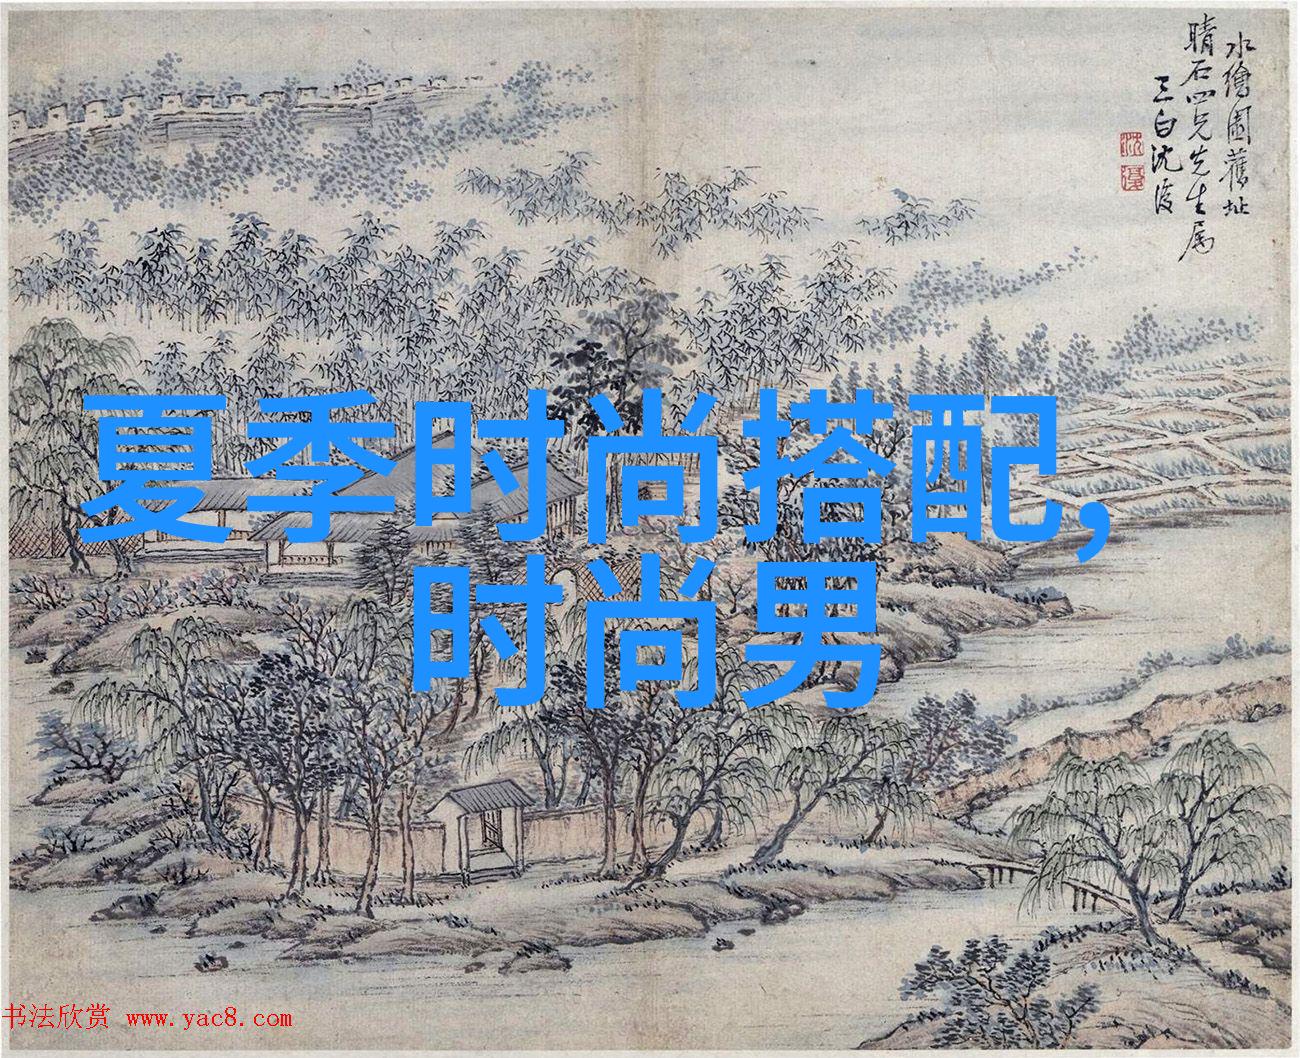 水繪園舊址
晴石四兄先生属
三白沈復
沈
復
夏季时尚搭配,
时尚男
书法欣赏 www.yac8.com